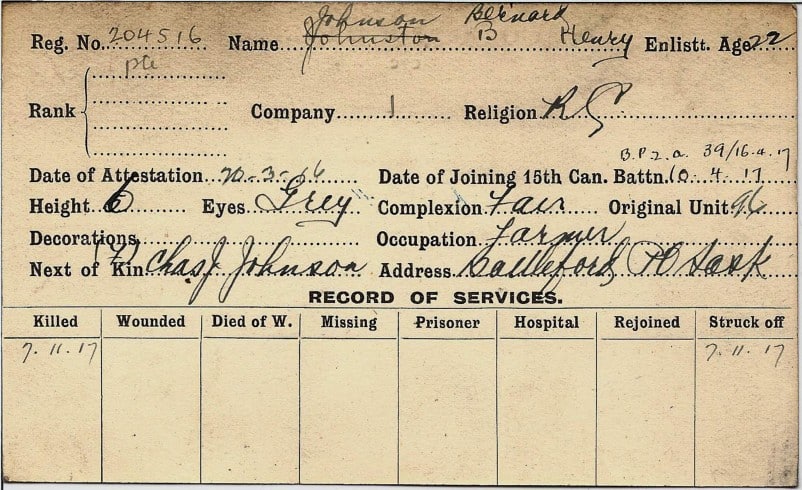 Johnson Bernard
Reg. No. 204516 Name Johnston B Henry Enlistt. Age 22
pte
Rank Company 1 Religion R C
B.P.2.a. 39/16.4.17
Date of Attestation 20-3-16 Date of Joining 15th Can. Battn. 10.4.17
Height 6 Eyes Grey Complexion Fair Original Unit 96
Decorations Occupation Farmer
Next of Kin Chas J. Johnson Address PO Sask
RECORD OF SERVICES.
Killed Wounded Died of W. Missing Prisoner Hospital Rejoined Struck off
7.11.17 7.11.17